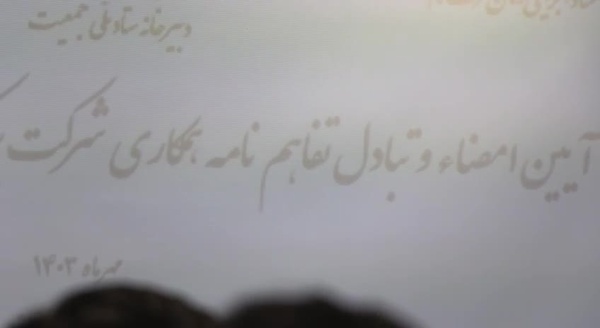 دبیرخانه ستاد ملی جمعیت
آیین امضاء و تبادل تفاهم نامه همکاری شرکت
مهرماه ۱۴۰۳